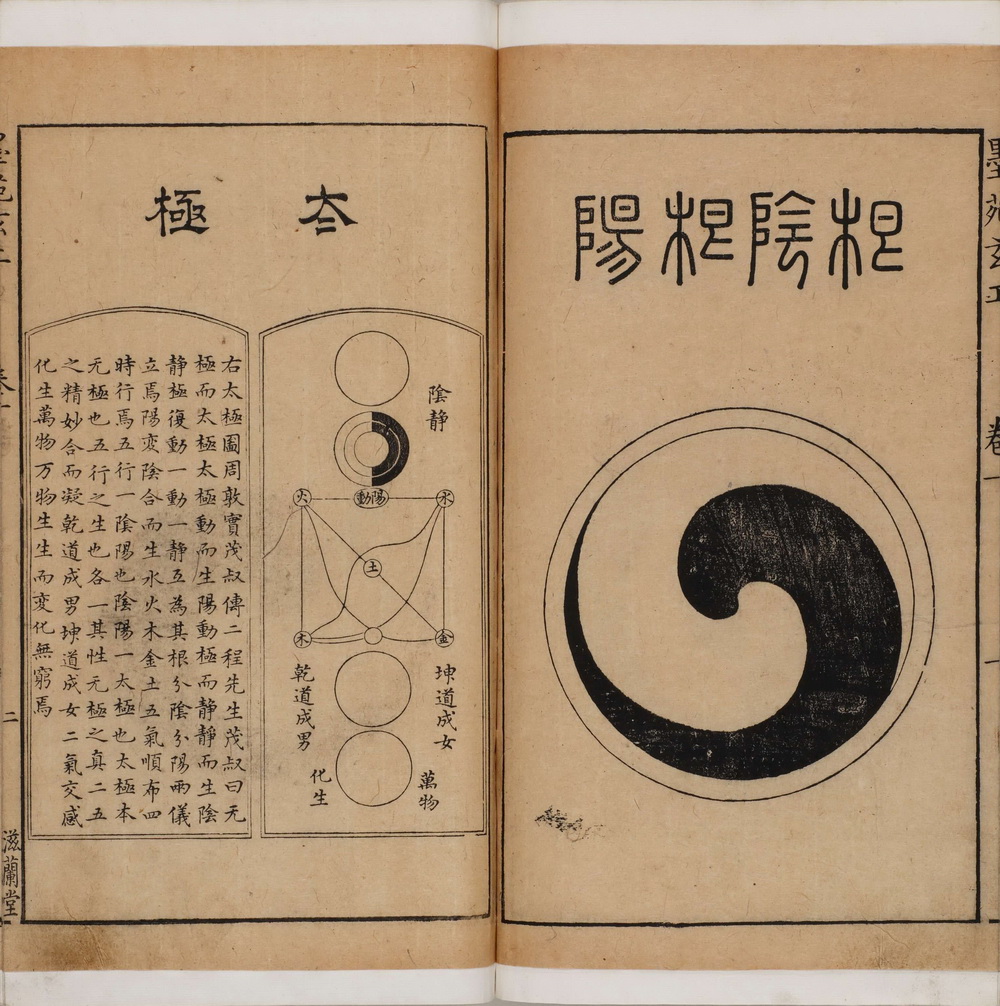 墨苑玄工
卷一
一
根陰根陽
夳極
陰静
陽動
水
火
土
金
木
坤道成女
乾道成男
萬物
化生
右太極圖周敦實茂叔傳二程先生茂叔曰无
極而太極太極動而生陽動極而静静而生陰
静極復動一動一静互為其根分陰分陽兩儀
立焉陽変陰合而生水火木金土五氣順布四
時行焉五行一陰陽也陰陽一太極也太極本
无極也五行之生也各一其性无極之真二五
之精妙合而凝乾道成男坤道成女二氣交感
化生萬物万物生生而変化無窮焉
二
滋蘭堂